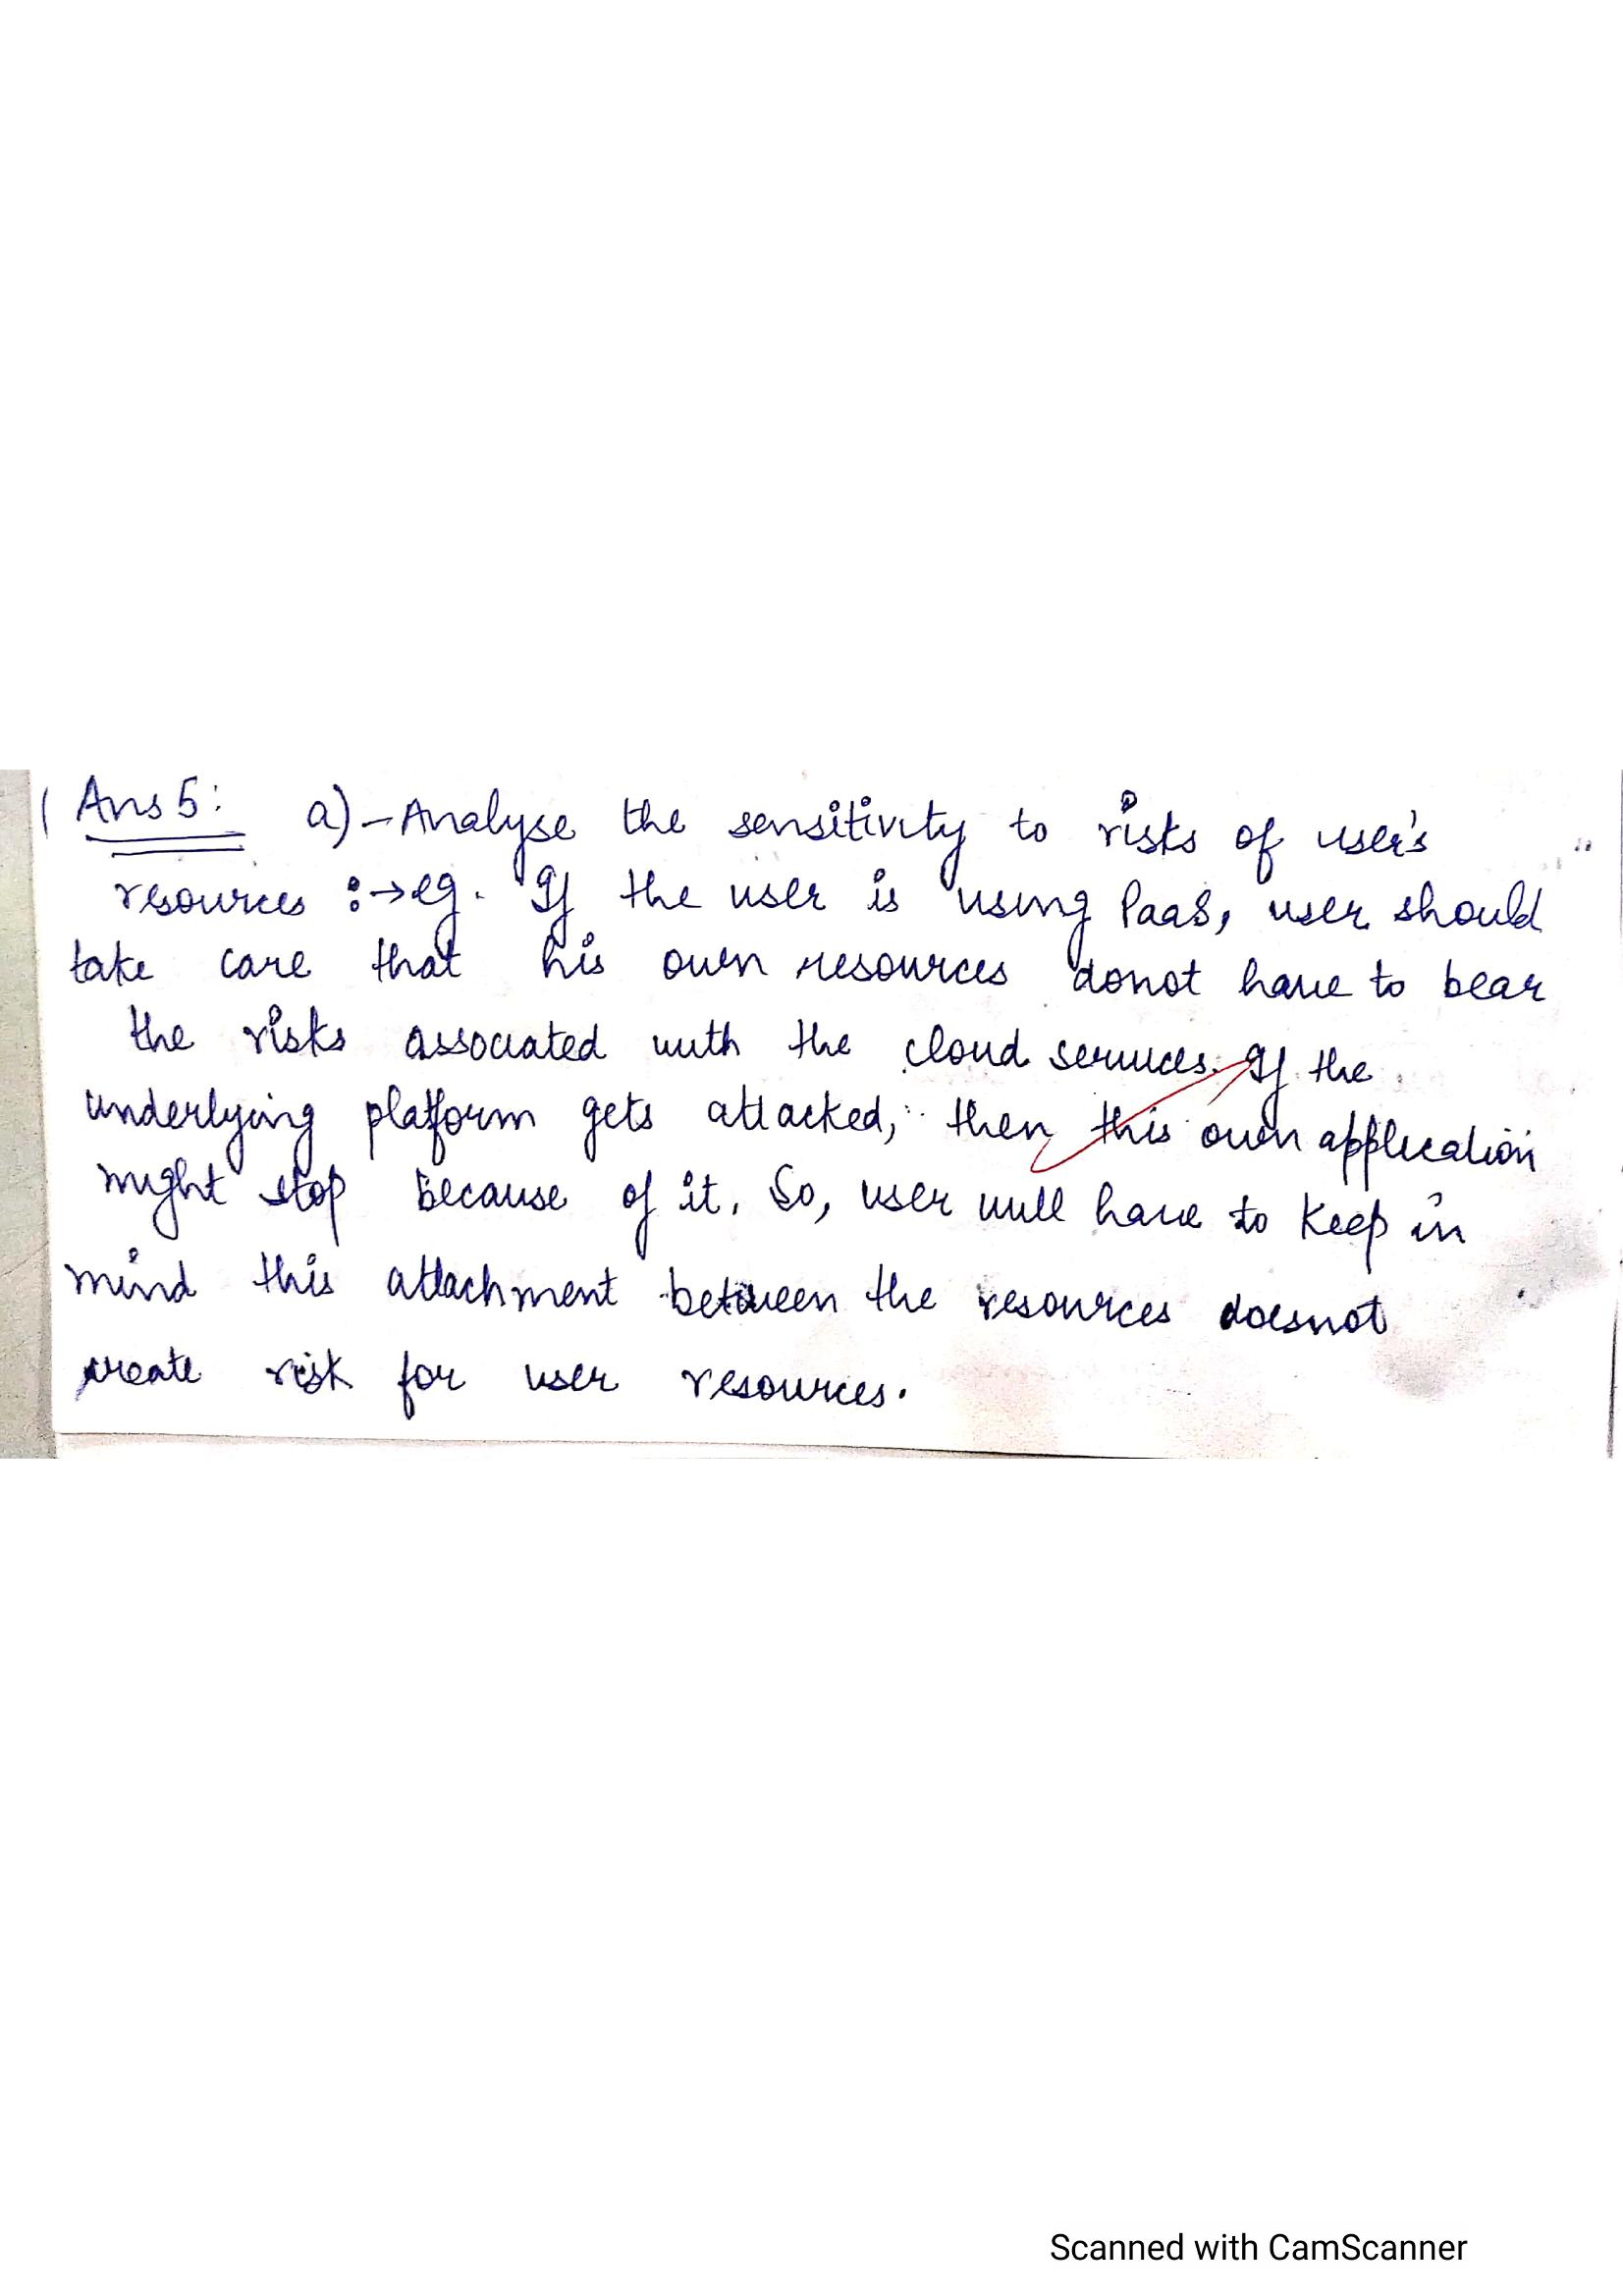 Ans 5: a) - Analyse the sensitivity to risks of user's
resources :→ eg. If the user is using PaaS, user should
take care that his own resources donot have to bear
the risks associated with the cloud services. If the
underlying platform gets attacked, then this own application
might stop because of it. So, user will have to keep in
mind this attachment between the resources doesnot
create risk for user resources.
Scanned with CamScanner